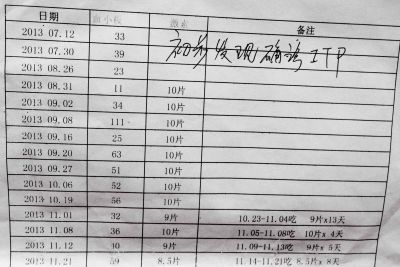 日期 血小板 激素 备注
2013 07.12 33 初步发现确诊ITP
2013 07.30 39
2013 08.26 23
2013 08.31 11 10片
2013 09.02 34 10片
2013 09.08 111 10片
2013 09.16 25 10片
2013 09.20 63 10片
2013 09.27 51 10片
2013 10.06 52 10片
2013 10.19 56 10片
2013 11.01 32 9片 10.23-11.04吃 9片x13天
2013 11.08 36 10片 11.05-11.08吃 10片x 4天
2013 11.12 40 9片 11.09-11.13吃 9片x 5天
2013 11.21 59 8.5片 11.14-11.21吃 8.5片x 8天